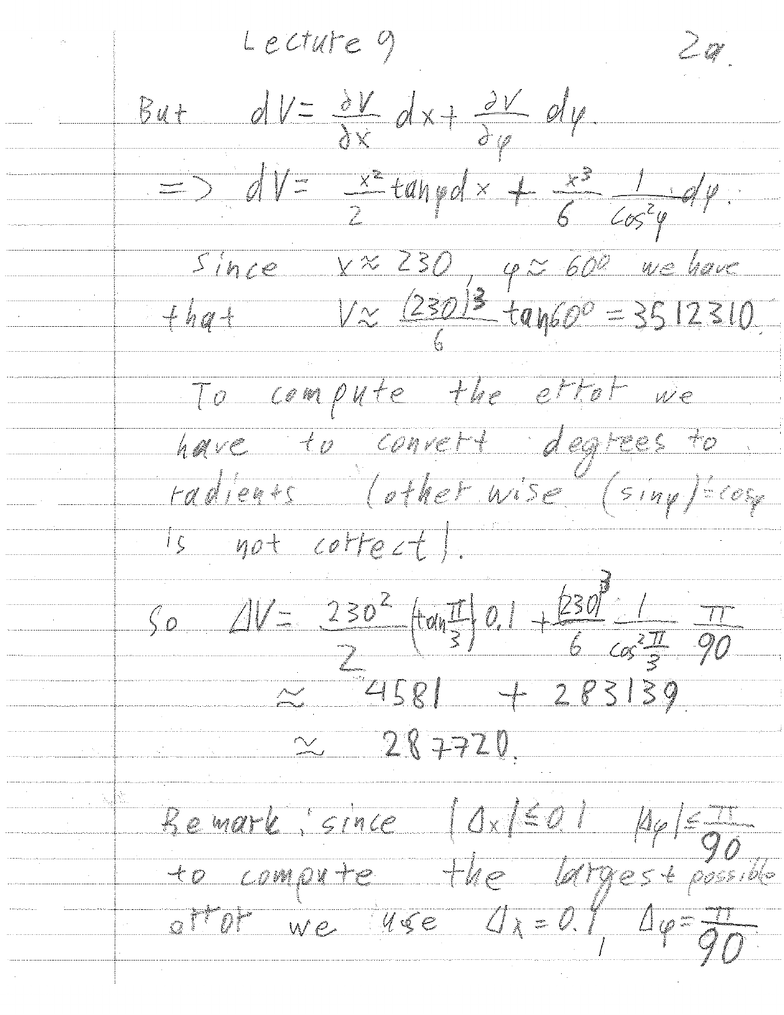 Lecture 9 2a.
But dV = ∂V/∂x dx + ∂V/∂φ dφ.
=> dV = x²/2 tanφ dx + x³/6 1/cos²φ dφ.
Since x ≈ 230, φ ≈ 60° we have
that V ≈ (230)³/6 tan60° = 3512310.
To compute the error we
have to convert degrees to
radients (otherwise (sinφ)' = cosφ
is not correct).
So ΔV = 230²/2 (tan π/3) 0.1 + (230)³/6 1/cos² π/3 π/90
≈ 4581 + 283139
≈ 287720.
Remark: since |Δx| ≤ 0.1 |Δφ| ≤ π/90
to compute the largest possible
error we use Δx = 0.1, Δφ = π/90